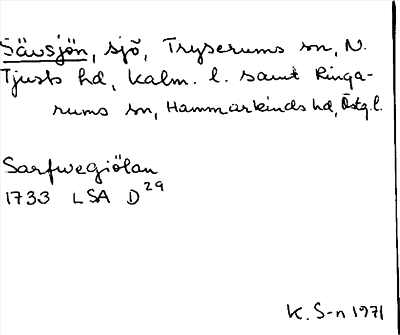 Sävsjön, sjö, Tryserums sn, N.
Tjusts hd, Kalm. l. samt Ringa-
rums sn, Hammarkinds hd, Östg.l.
Sarfwegiölan
1733 LSA D²⁹
K. S-n 1971